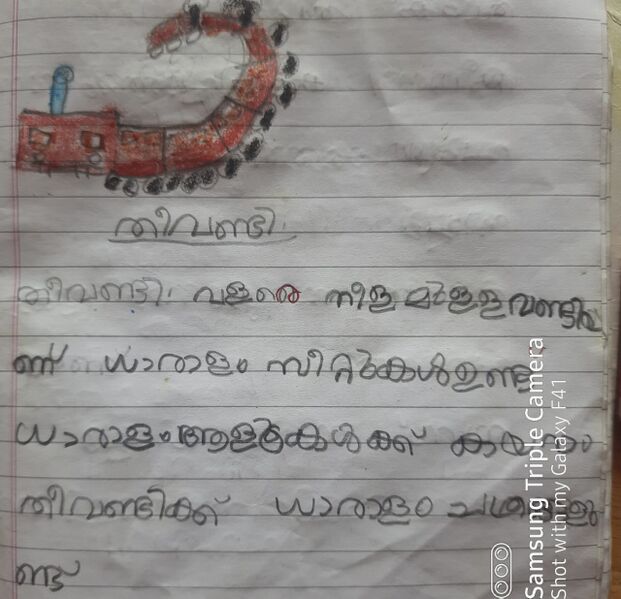 തീവണ്ടി.
തീവണ്ടി. വളരെ നീളമുള്ള വണ്ടിയാ
ണ് ധാരാളം സീറ്റുകൾ ഉണ്ട്
ധാരാളം ആളുകൾക്ക് കയറാം
തീവണ്ടിക്ക് ധാരാളം
ണ്ട്
Samsung Triple Camera
Shot with my Galaxy F41